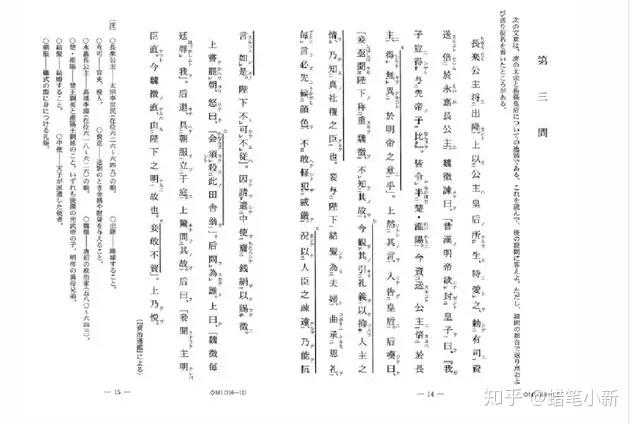 第三問
次の文章は、唐の太宗と長孫皇后についての逸話である。これを読んで、後の設問に答えよ。ただし、設問の都合で送り仮名を省いたところがある。
長楽公主将出降。上以公主皇后所生、特愛之、勅有司資
送倍於永嘉長公主。魏徴諫曰、「昔漢明帝欲封皇子曰、『我
子豈得与先帝子比。』皆令半楚・淮陽。今資送公主、倍於長
主、得無異於明帝之意乎。」上然其言、入告皇后。后嘆曰、
「妾亟聞陛下称重魏徴、不知其故。今観其引礼義以抑人主之
情、乃知真社稷之臣也。妾与陛下結髪為夫婦、曲承恩礼、
毎言必先候顔色、不敢軽犯威厳。況以人臣之疎遠、乃能抗
言如是。陛下不可不従。」因請遣中使齎銭絹以賜徴。
上嘗罷朝、怒曰、「会須殺此田舎翁。」后問為誰。上曰、「魏徴毎
廷辱我。」后退、具朝服立于庭。上驚問其故。后曰、「妾聞主明
臣直。今魏徴直、由陛下之明故也。妾敢不賀。」上乃悦。
(『資治通鑑』による)
〔注〕
○長楽公主――太宗李世民(在位六二六〜六四九)の娘。
○出降――降嫁すること。
○有司――官吏、役人。
○永嘉長公主――高祖李淵(在位六一八〜六二六)の娘。
○魏徴――唐初の政治家(五八〇〜六四三)。
○結髪――結婚すること。
○中使――天子が派遣した使者。
○朝服――儀式の際に身につける礼服。
— 15 —
— 14 —
知乎 @蜡笔小新